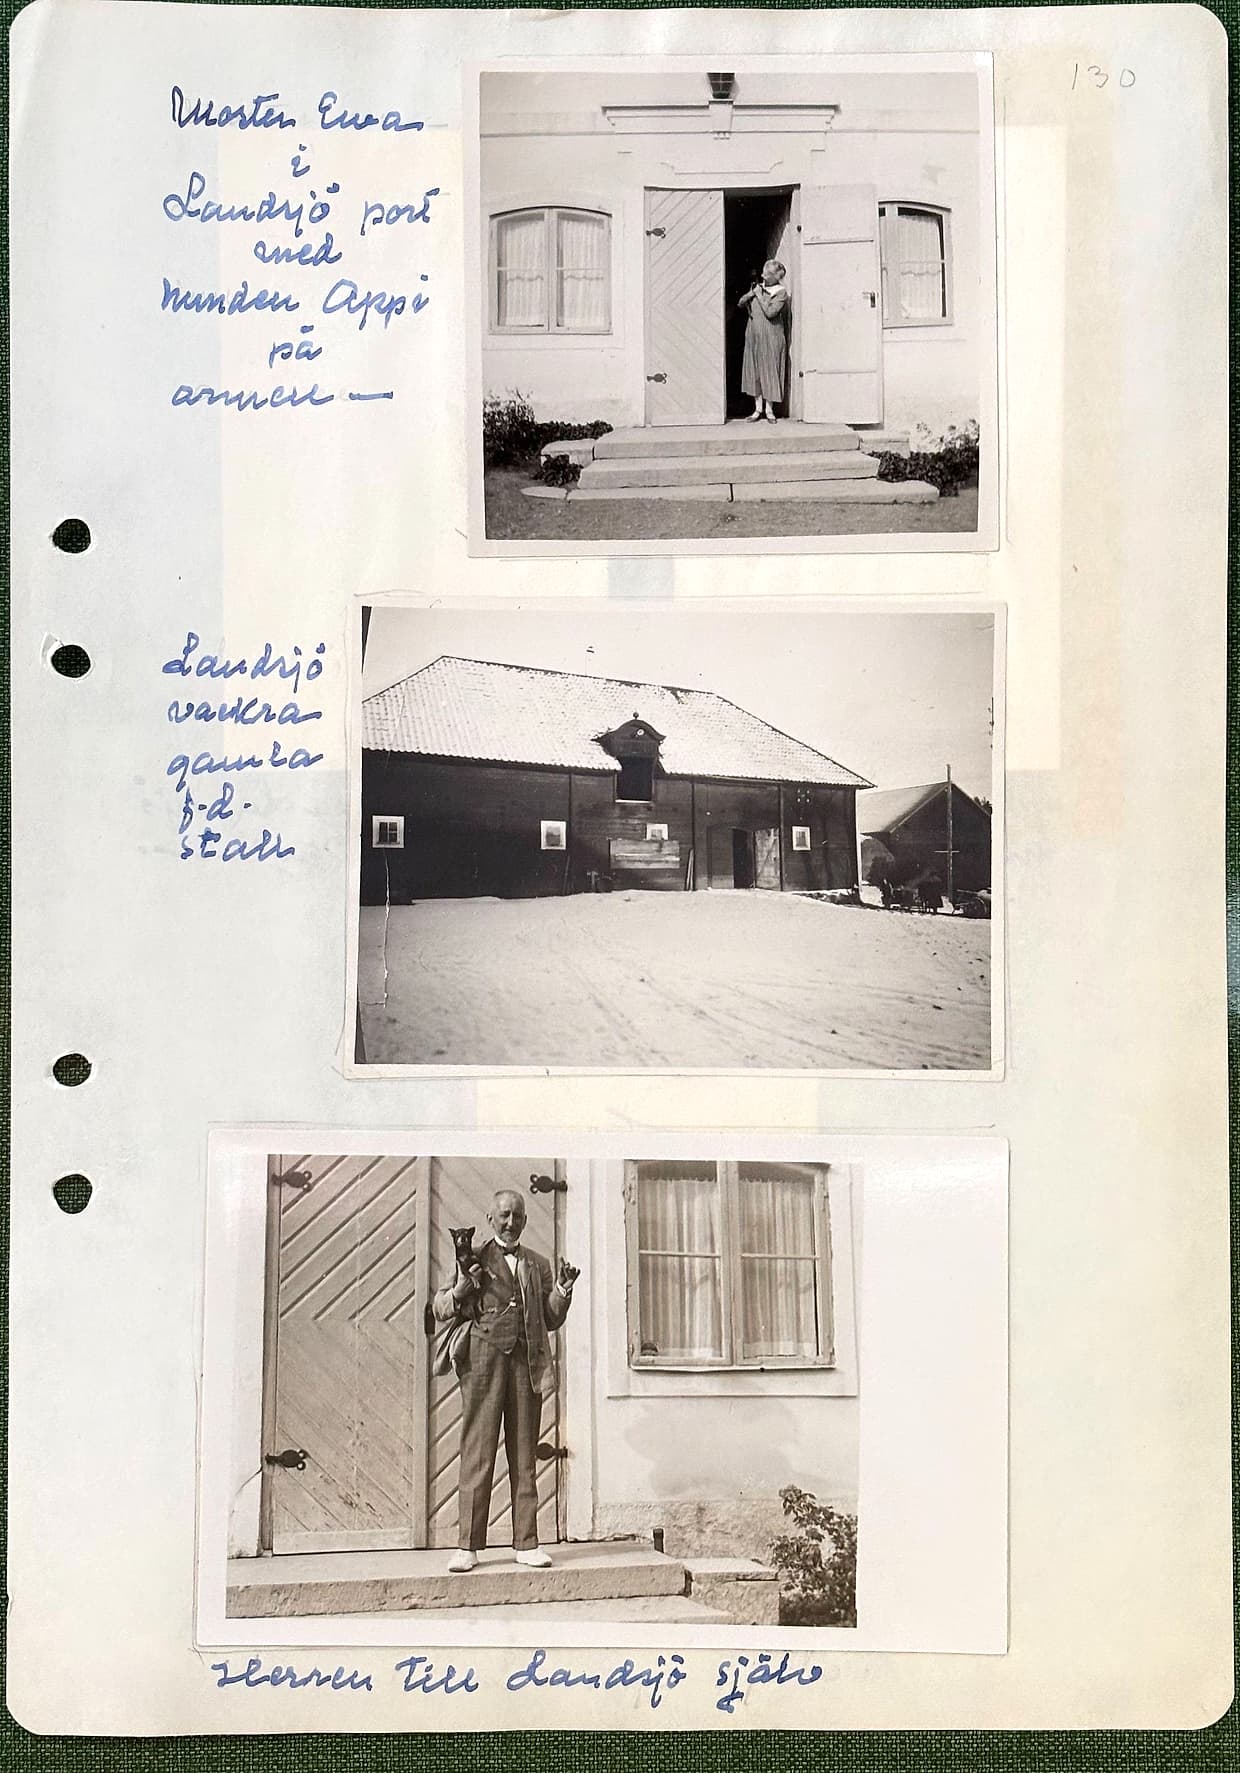 130
Moster Ewa
i
Landsjö port
med
hunden Appi
på
armen —
Landsjö
vackra
gamla
f.d.
stall
Herren till Landsjö själv